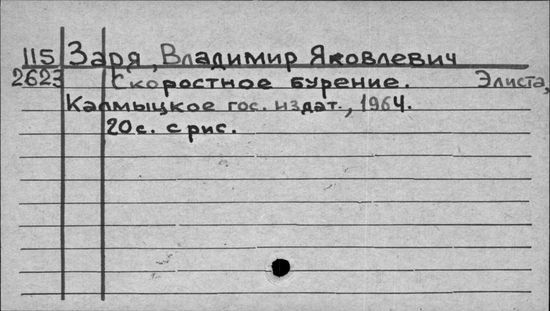 115 Заря, Владимир Яковлевич
2623 Скоростное бурение. Элиста,
Калмыцкое гос. издат., 1964.
20 с. с рис.